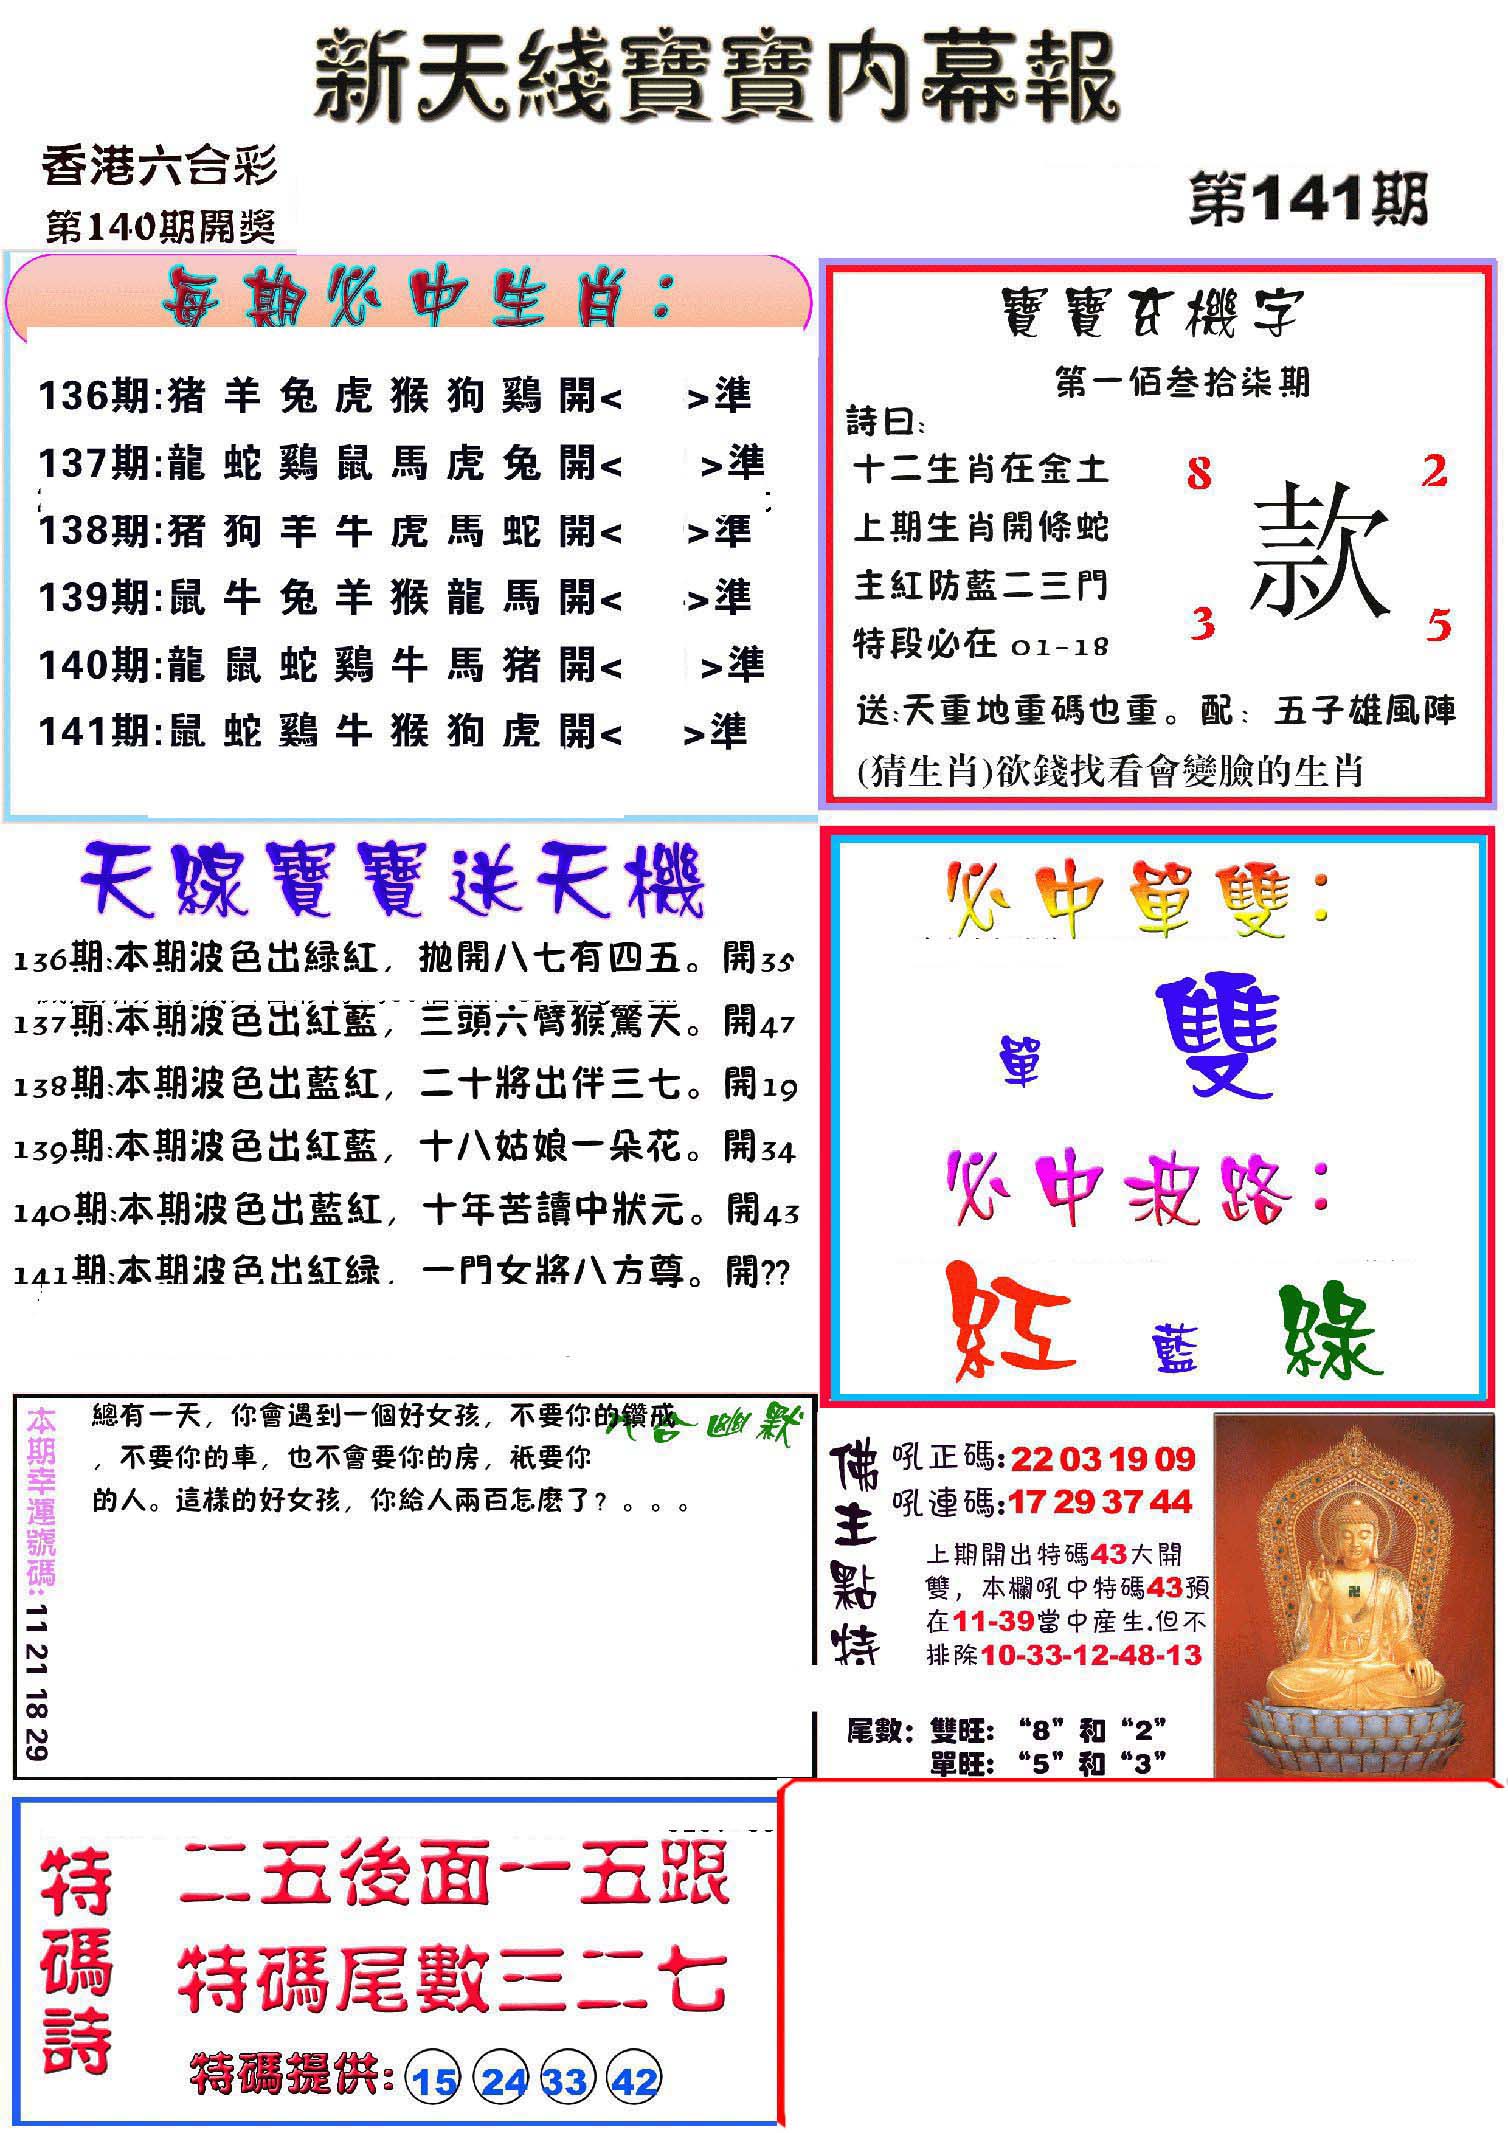 新天綫寶寶内幕報
香港六合彩
第140期開獎
第141期
每期必中生肖：
136期:猪羊兔虎猴狗鷄開< >準
137期:龍蛇鷄鼠馬虎兔開< >準
138期:猪狗羊牛虎馬蛇開< >準
139期:鼠牛兔羊猴龍馬開< >準
140期:龍鼠蛇鷄牛馬猪開< >準
141期:鼠蛇鷄牛猴狗虎開< >準
寶寶玄機字
第一佰叁拾柒期
詩曰:
十二生肖在金土
上期生肖開條蛇
主紅防藍二三門
特段必在 01-18
8 2
款
3 5
送:天重地重碼也重。配：五子雄風陣
(猜生肖)欲錢找看會變臉的生肖
天線寶寶送天機
136期:本期波色出綠紅，拋開八七有四五。開35
137期:本期波色出紅藍，三頭六臂猴驚天。開47
138期:本期波色出藍紅，二十將出伴三七。開19
139期:本期波色出紅藍，十八姑娘一朵花。開34
140期:本期波色出藍紅，十年苦讀中狀元。開43
141期:本期波色出紅绿，一門女將八方尊。開??
必中單雙：
單 雙
必中波路：
紅 藍 綠
本期幸運號碼:11 21 18 29
六合幽默
總有一天，你會遇到一個好女孩，不要你的鑽戒
，不要你的車，也不會要你的房，衹要你
的人。這樣的好女孩，你給人兩百怎麽了？。。。
佛主點特
吼正碼:22 03 19 09
吼連碼:17 29 37 44
上期開出特碼43大開
雙，本欄吼中特碼43預
在11-39當中産生.但不
排除10-33-12-48-13
尾數：雙旺：“8”和“2”
單旺：“5”和“3”
特碼詩
二五後面一五跟
特碼尾數三二七
特碼提供: 15 24 33 42